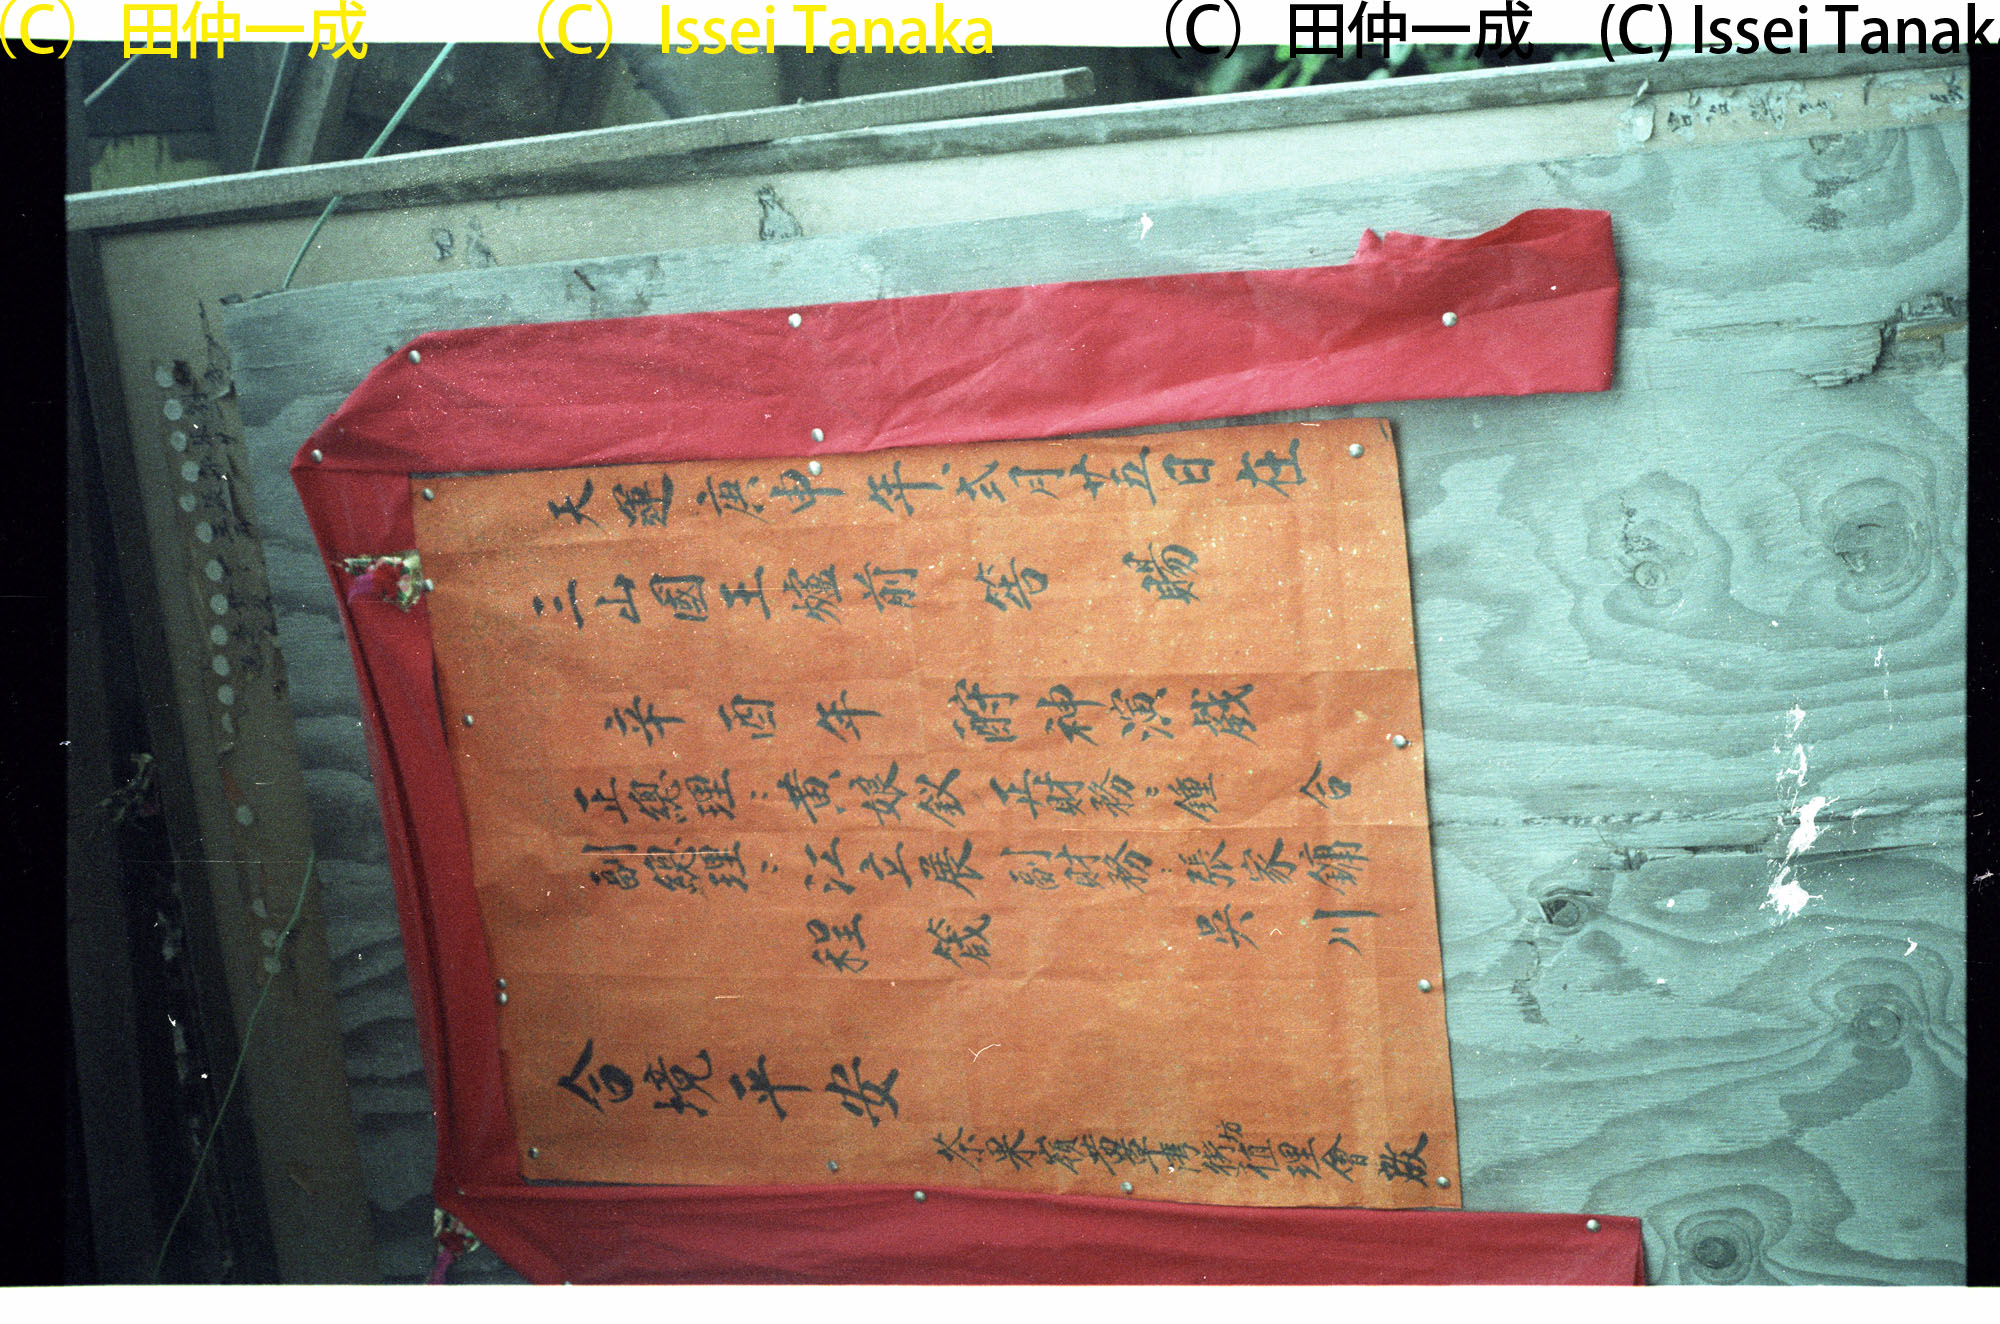 (C) 田仲一成 (C) Issei Tanaka (C) 田仲一成 (C) Issei Tanaka
天運庚申年弍月廿五日在
三山國王爐前 答 賜
辛酉年 酧神演戲
正總理：黃娘釵 正財務：鍾 合
副總理：江立展 副財務：張家鏞
程 箴 吳 川
合境平安
茶果嶺 管理會啟